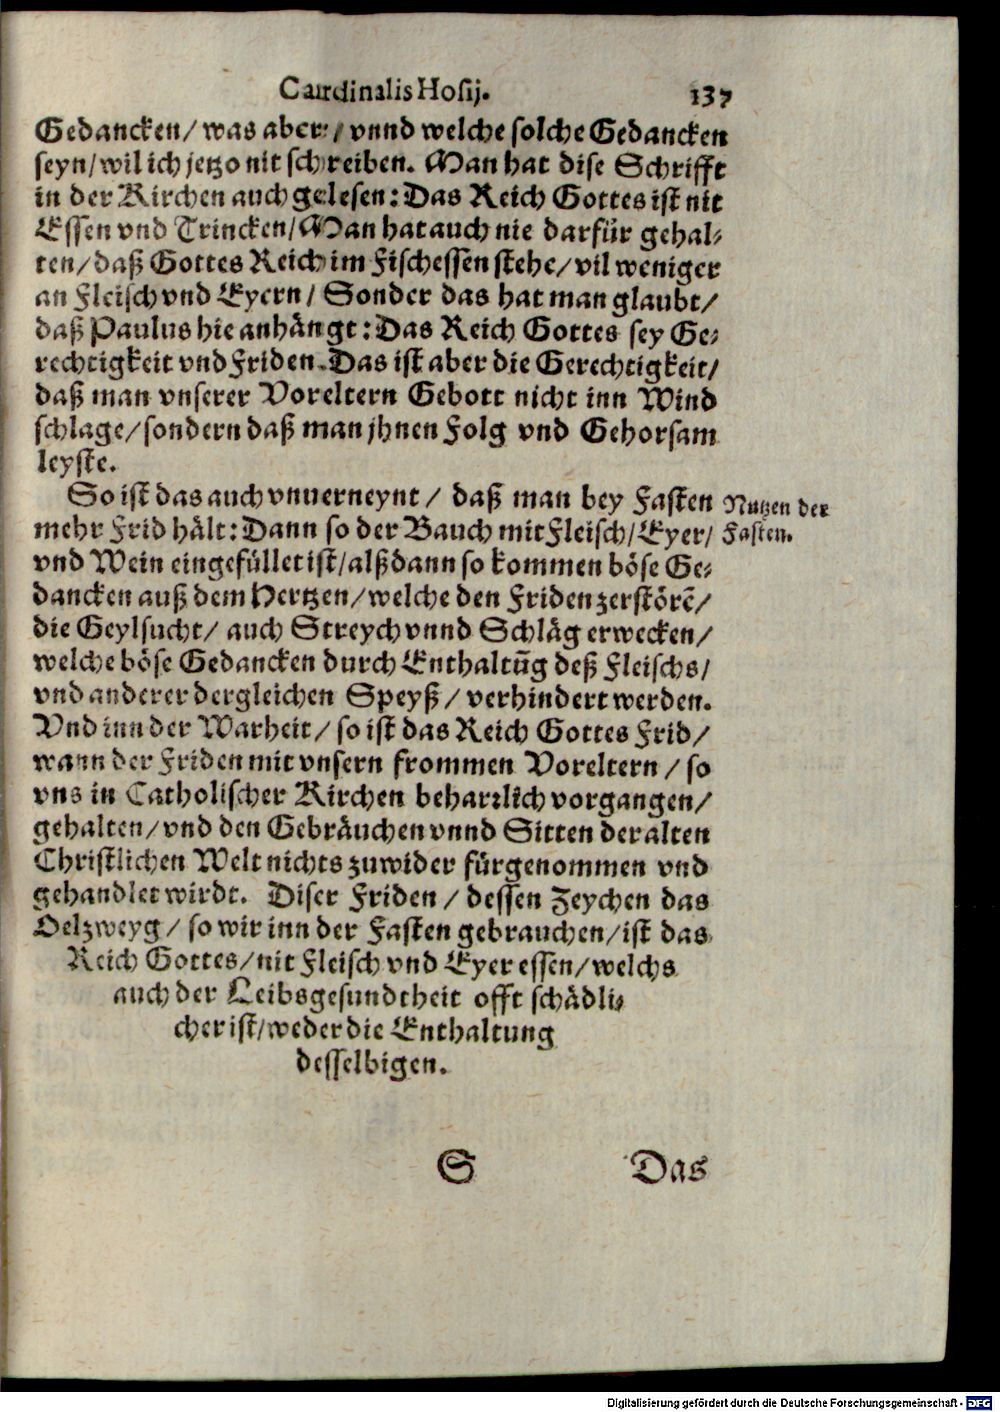 Cardinalis Hosij. 137
Gedancken/ was aber/ vnnd welche solche Gedancken
seyn/ wil ich jetzo nit schreiben. Man hat dise Schrifft
in der Kirchen auch gelesen: Das Reich Gottes ist nit
Essen vnd Trincken/ Man hat auch nie darfür gehal-
ten/ daß Gottes Reich im Fischessen stehe/ vil weniger
an Fleisch vnd Eyern/ Sonder das hat man glaubt/
daß Paulus hie anhängt: Das Reich Gottes sey Ge-
rechtigkeit vnd Friden. Das ist aber die Gerechtigkeit/
daß man vnserer Voreltern Gebott nicht inn Wind
schlage/ sondern daß man jhnen Folg vnd Gehorsam
leyste.
So ist das auch vnuerneynt/ daß man bey Fasten
mehr Frid hält: Dann so der Bauch mit Fleisch/ Eyer/
vnd Wein eingefüllet ist/ alßdann so kommen böse Ge-
dancken auß dem Hertzen/ welche den Friden zerstörẽ/
die Geylsucht/ auch Streych vnnd Schläg erwecken/
welche böse Gedancken durch Enthaltũg deß Fleischs/
vnd anderer dergleichen Speyß/ verhindert werden.
Vnd inn der Warheit/ so ist das Reich Gottes Frid/
wann der Friden mit vnsern frommen Voreltern/ so
vns in Catholischer Kirchen beharrlich vorgangen/
gehalten/ vnd den Gebräuchen vnnd Sitten der alten
Christlichen Welt nichts zuwider fürgenommen vnd
gehandlet wirdt. Diser Friden/ dessen Zeychen das
Oelzweyg/ so wir inn der Fasten gebrauchen/ ist das
Reich Gottes/ nit Fleisch vnd Eyer essen/ welchs
auch der Leibsgesundtheit offt schädli-
cher ist/ weder die Enthaltung
desselbigen.
Nutzen der
Fasten.
S Das
Digitalisierung gefördert durch die Deutsche Forschungsgemeinschaft - DFG